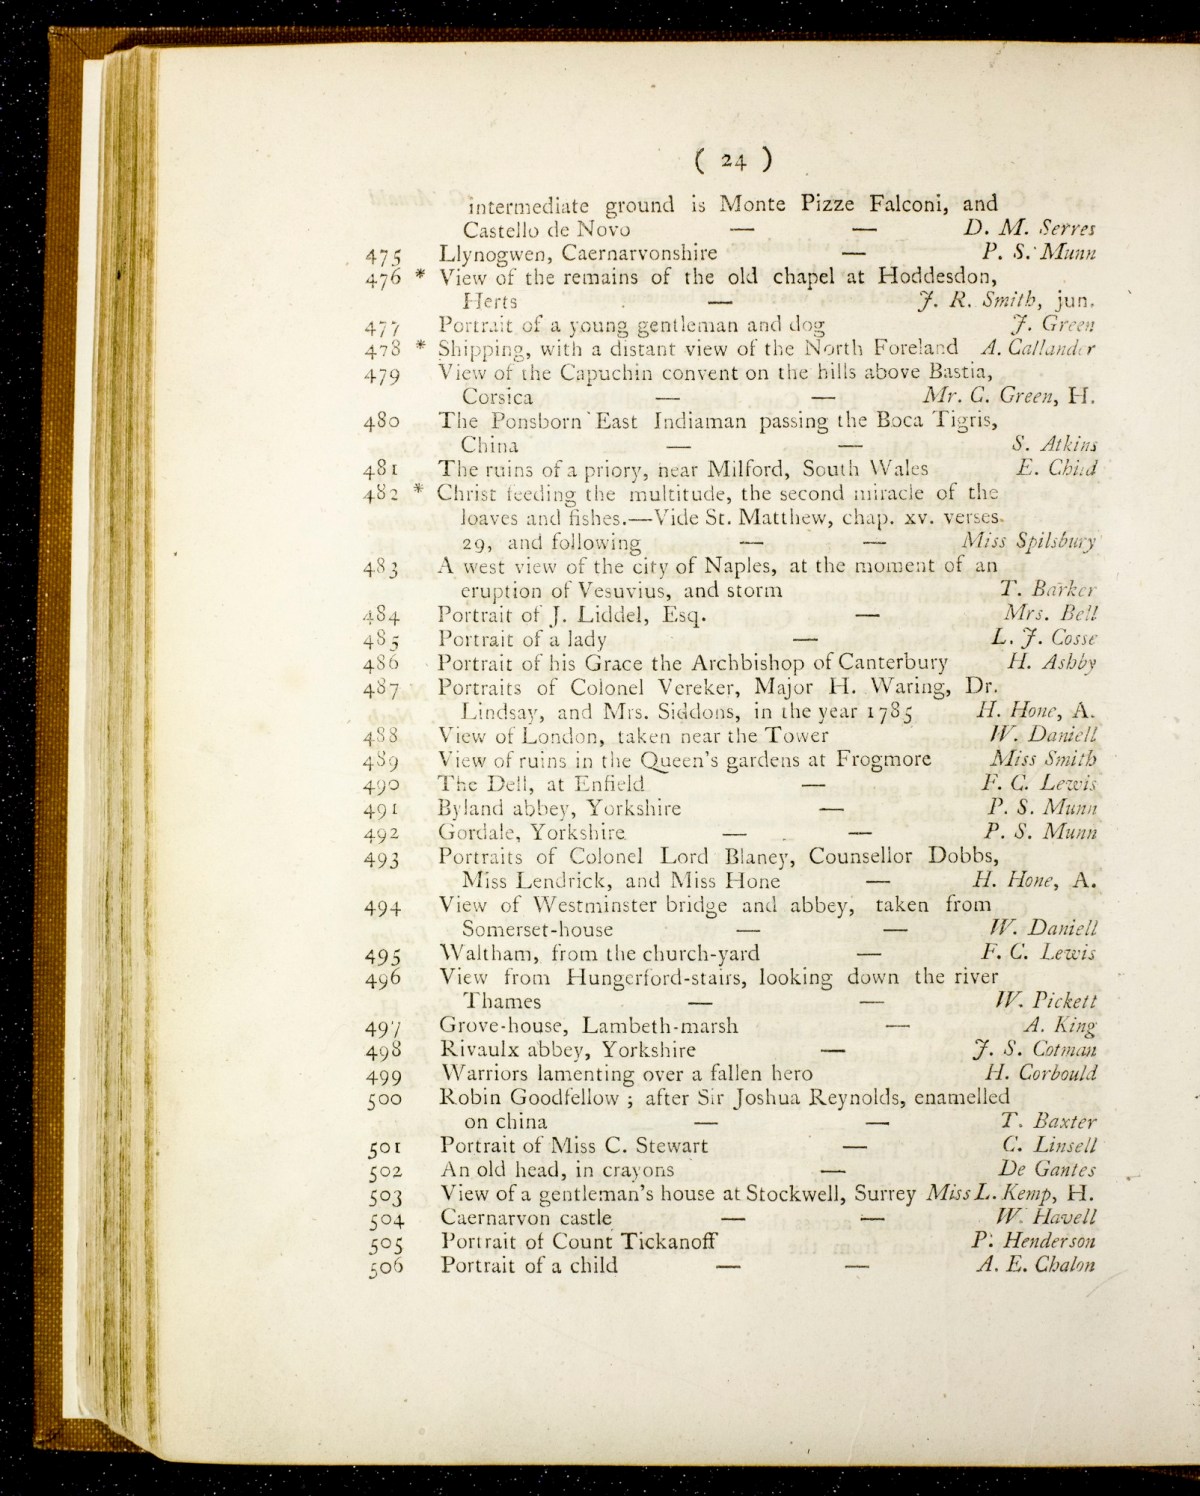 ( 24 )
intermediate ground is Monte Pizze Falconi, and
Castello de Novo — — D. M. Serres
475 Llynogwen, Caernarvonshire — P. S. Munn
476 * View of the remains of the old chapel at Hoddesdon,
Herts — J. R. Smith, jun.
477 Portrait of a young gentleman and dog J. Green
478 * Shipping, with a distant view of the North Foreland A. Callander
479 View of the Capuchin convent on the hills above Bastia,
Corsica — — Mr. C. Green, H.
480 The Ponsborn East Indiaman passing the Boca Tigris,
China — — S. Atkins
481 The ruins of a priory, near Milford, South Wales E. Child
482 * Christ feeding the multitude, the second miracle of the
loaves and fishes.—Vide St. Matthew, chap. xv. verses
29, and following — — Miss Spilsbury
483 A west view of the city of Naples, at the moment of an
eruption of Vesuvius, and storm T. Barker
484 Portrait of J. Liddel, Esq. — Mrs. Bell
485 Portrait of a lady — L. J. Cosse
486 Portrait of his Grace the Archbishop of Canterbury H. Ashby
487 Portraits of Colonel Vereker, Major H. Waring, Dr.
Lindsay, and Mrs. Siddons, in the year 1785 H. Hone, A.
488 View of London, taken near the Tower W. Daniell
489 View of ruins in the Queen's gardens at Frogmore Miss Smith
490 The Dell, at Enfield — F. C. Lewis
491 Byland abbey, Yorkshire — P. S. Munn
492 Gordale, Yorkshire — — P. S. Munn
493 Portraits of Colonel Lord Blaney, Counsellor Dobbs,
Miss Lendrick, and Miss Hone — H. Hone, A.
494 View of Westminster bridge and abbey, taken from
Somerset-house — — W. Daniell
495 Waltham, from the church-yard — F. C. Lewis
496 View from Hungerford-stairs, looking down the river
Thames — — W. Pickett
497 Grove-house, Lambeth-marsh — A. King
498 Rivaulx abbey, Yorkshire — J. S. Cotman
499 Warriors lamenting over a fallen hero H. Corbould
500 Robin Goodfellow ; after Sir Joshua Reynolds, enamelled
on china — — T. Baxter
501 Portrait of Miss C. Stewart — C. Linsell
502 An old head, in crayons — De Gantes
503 View of a gentleman's house at Stockwell, Surrey Miss L. Kemp, H.
504 Caernarvon castle — — W. Havell
505 Portrait of Count Tickanoff P. Henderson
506 Portrait of a child — — A. E. Chalon